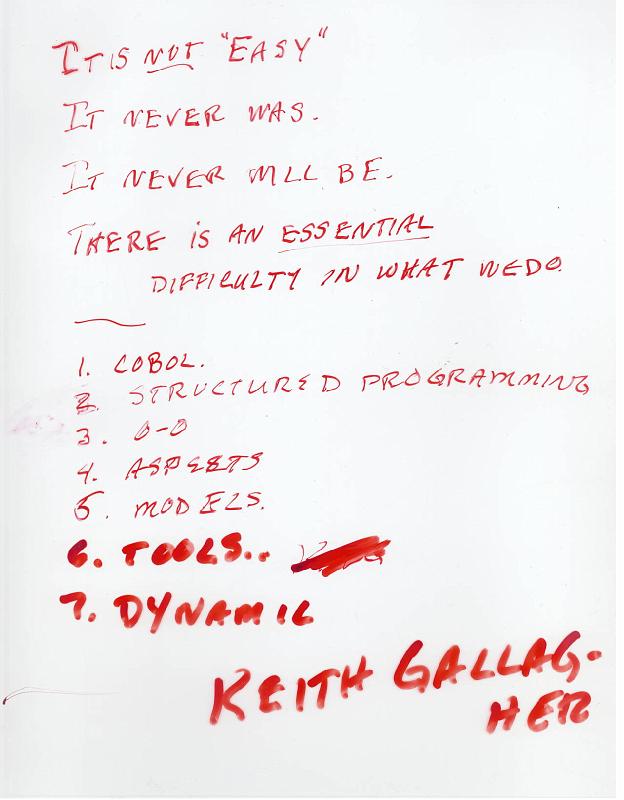 IT IS NOT "EASY"
IT NEVER WAS.
IT NEVER WILL BE.
THERE IS AN ESSENTIAL
DIFFICULTY IN WHAT WE DO.
1. COBOL.
2. STRUCTURED PROGRAMMING
3. O-O
4. ASPECTS
5. MODELS.
6. TOOLS..
7. DYNAMIC
KEITH GALLAG-
HER